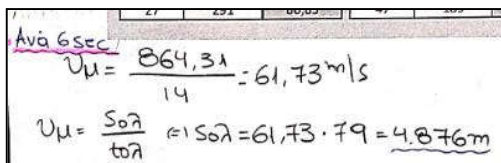 27 291 60,63 47 189
Ανά 6sec
υμ = 864,31 / 14 = 61,73 m/s
υμ = Sολ / tολ (=) Sολ = 61,73 · 79 = 4.876m